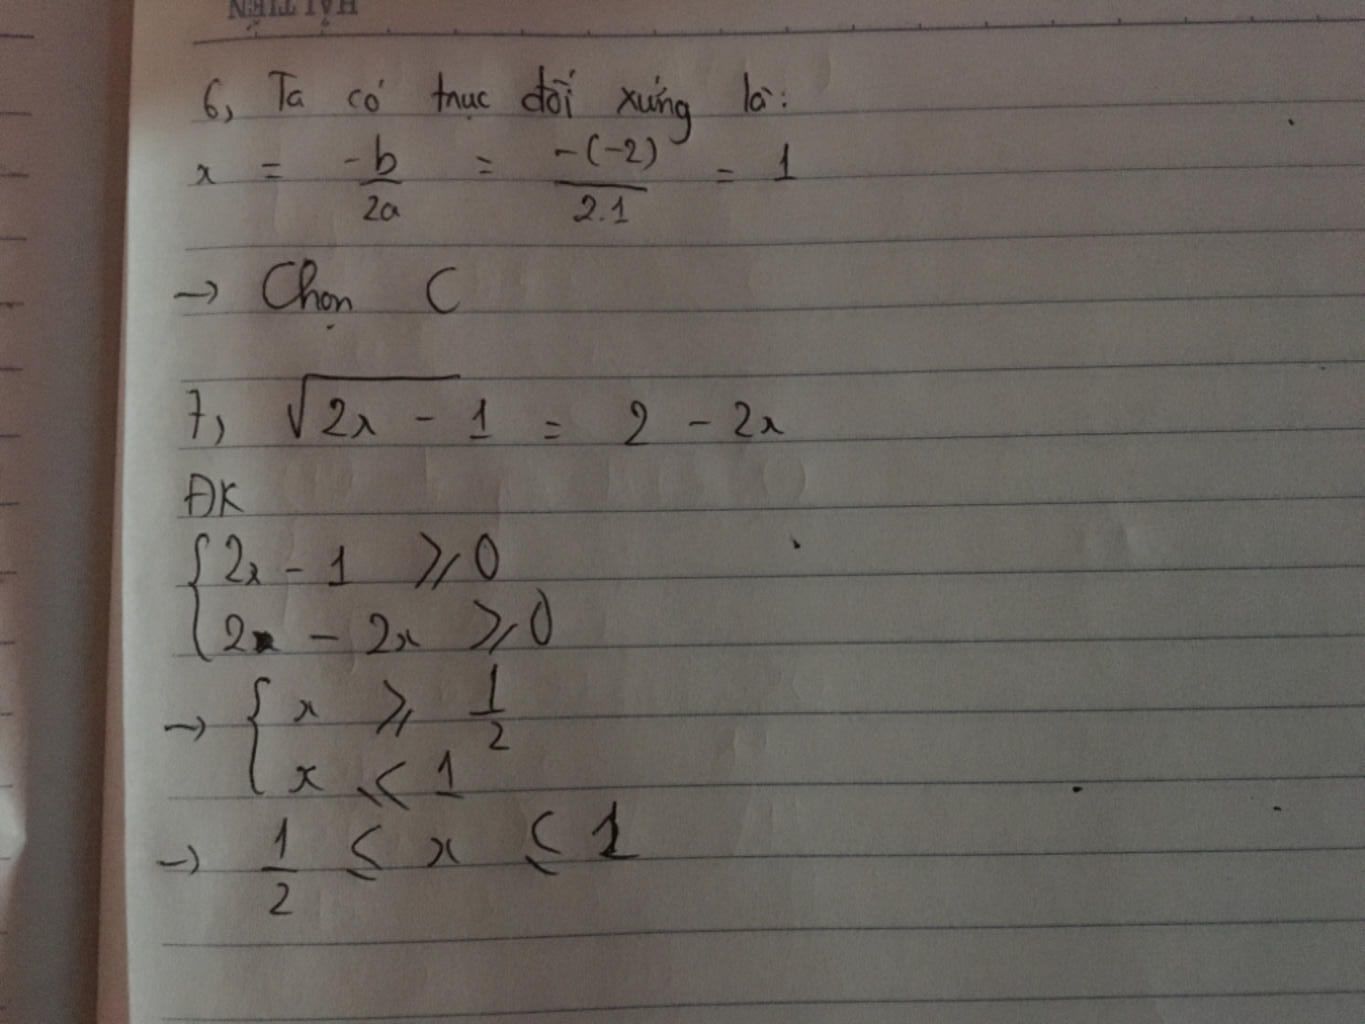 HẢI TIẾN
6, Ta có trục đối xứng là:
x = -b/2a = -(-2)/2.1 = 1
→ Chọn C
7, √(2x - 1) = 2 - 2x
ĐK
{ 2x - 1 ⩾ 0
2 - 2x ⩾ 0
→ { x ⩾ 1/2
x ⩽ 1
→ 1/2 ⩽ x ⩽ 1